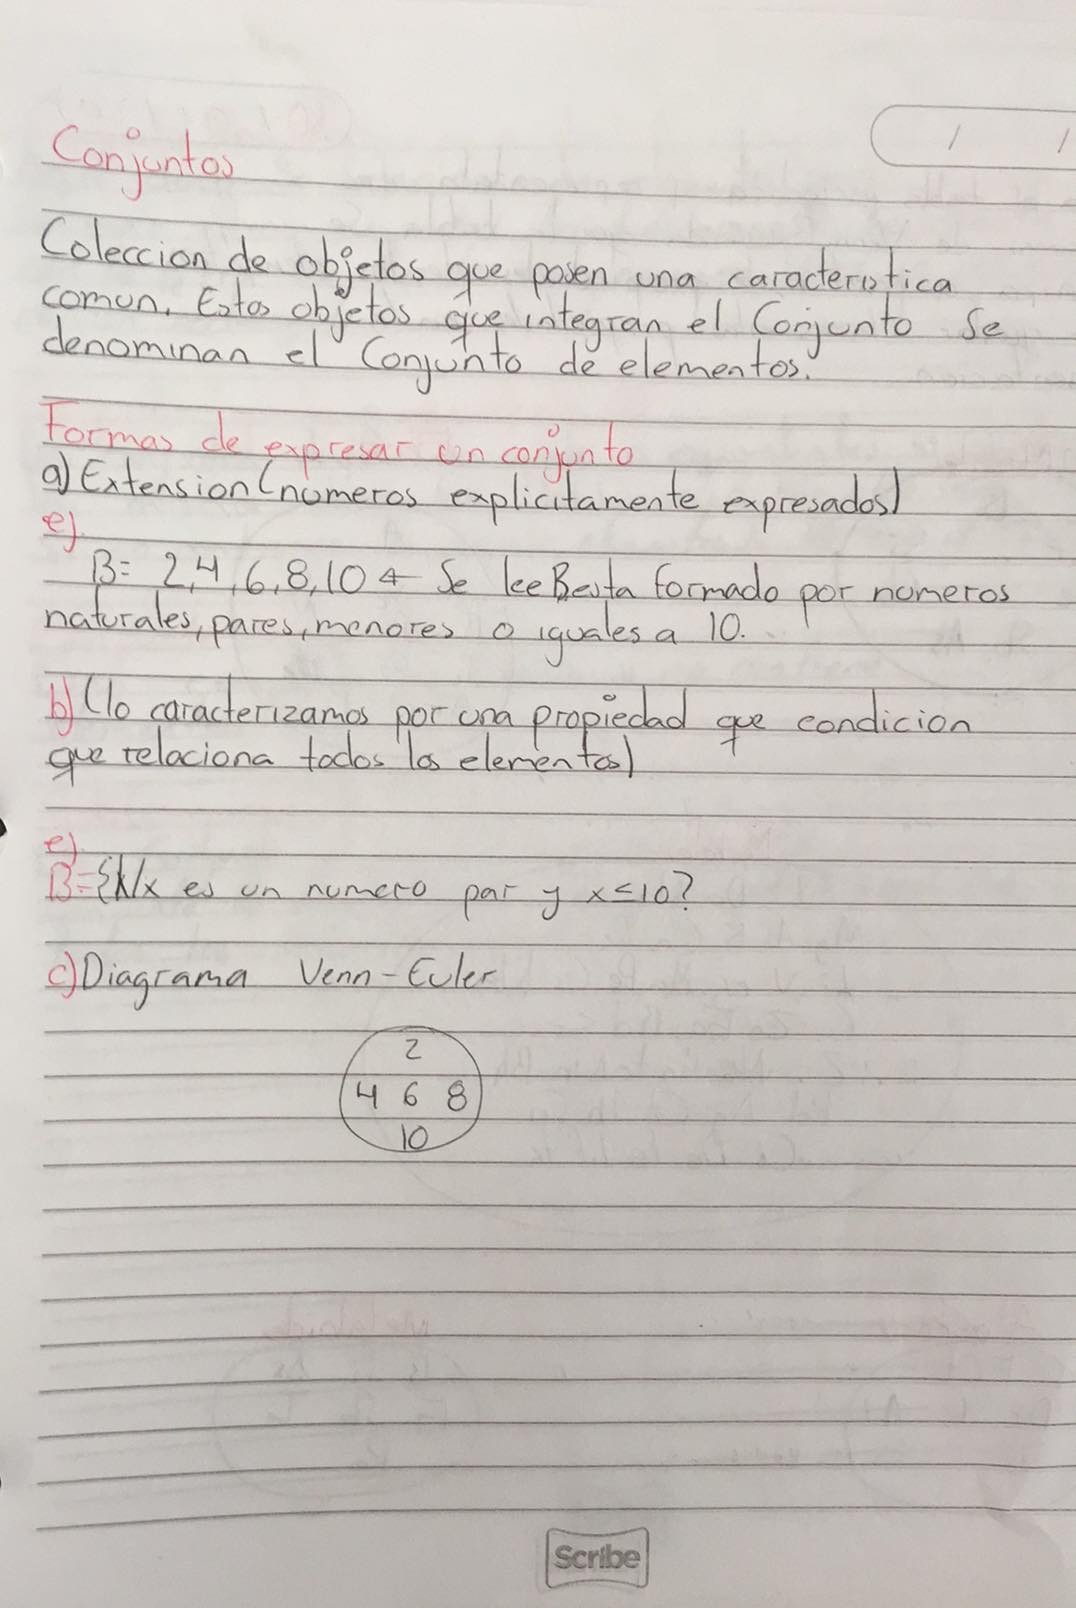 Conjuntos
Coleccion de objetos que posen una caracteristica
comun. Estos objetos que integran el Conjunto Se
denominan el Conjunto de elementos.
Formas de expresar un conjunto
a) Extension (numeros explicitamente expresados)
ej.
B= 2,4,6,8,10 ← Se lee B esta formado por numeros
naturales, pares, menores o iguales a 10.
b) (lo caracterizamos por una propiedad que condicion
que relaciona todos los elementos)
ej.
B={x/x es un numero par y x≤10}
c) Diagrama Venn-Euler
2
4 6 8
10
Scribe